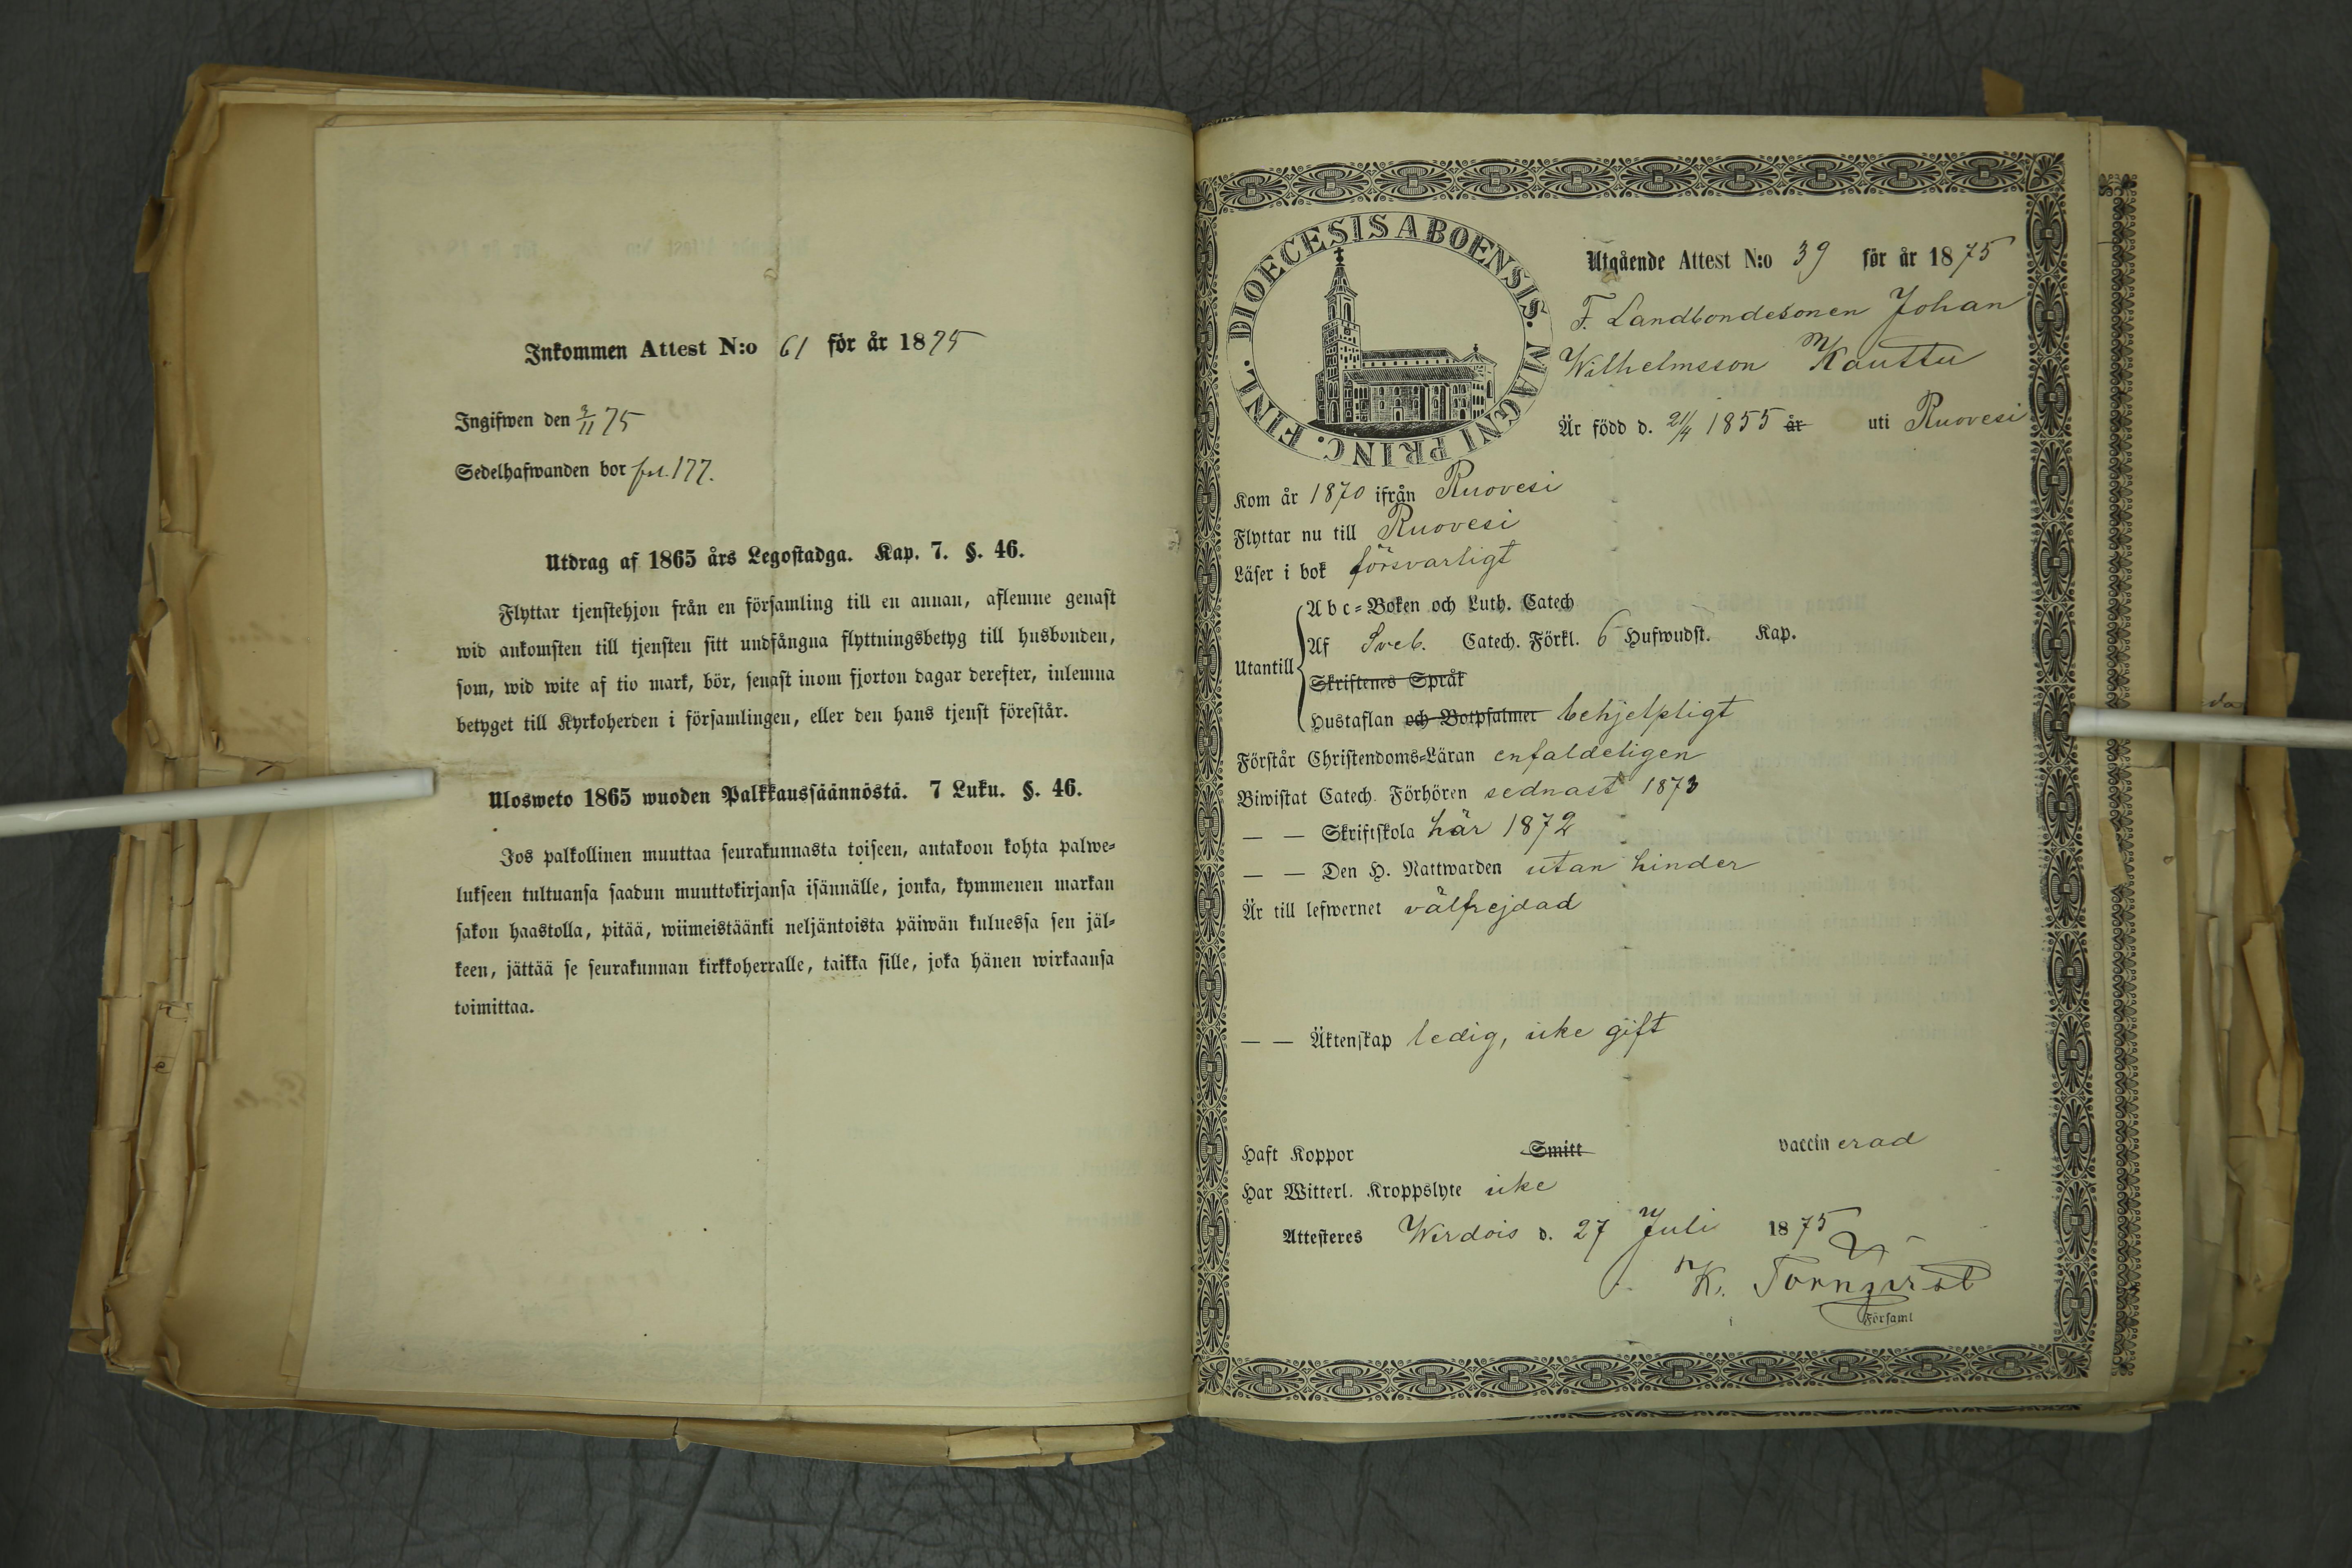 Inkommen Attest N:o 61 för år 1875
Ingifwen den 2/11 75
Sedelhafwanden bor fol. 177.
Utdrag af 1865 års Legostadga. Kap. 7. §. 46.
Flyttar tjenstehjon från en församling till en annan, aflemne genast
wid ankomsten till tjensten sitt undfångna flyttningsbetyg till husbonden,
som, wid wite af tio mark, bör, senast inom fjorton dagar derefter, inlemna
betyget till Kyrkoherden i församlingen, eller den hans tjenst förestår.
Ulosweto 1865 wuoden Palkkaussäännöstä. 7 Luku. §. 46.
Jos palkollinen muuttaa seurakunnasta toiseen, antakoon kohta palwe-
lukseen tultuansa saadun muuttokirjansa isännälle, jonka, kymmenen markan
sakon haastolla, pitää, wiimeistäänki neljäntoista päiwän kuluessa sen jäl-
keen, jättää se seurakunnan kirkkoherralle, taikka sille, joka hänen wirkaansa
toimittaa.
DIOECESIS ABOENSIS. MAGNI PRINC. FINL.
Utgående Attest N:o 39 för år 1875
F. Landbondesonen Johan
Wilhelmsson Kauttu
Är född d. 21/4 1855 år uti Ruovesi
Kom år 1870 ifrån Ruovesi
Flyttar nu till Ruovesi
Läser i bok försvarligt
Abc-Boken och Luth. Catech
Utantill Af Sveb. Catech. Förkl. 6 Hufwudst. Kap.
Skriftenes Språk
Hustaflan och Botpsalmer behjelpligt
Förstår Christendoms-Läran enfaldeligen
Biwistat Catech. Förhören sednast 1873
— — Skriftskola här 1872
— — Den H. Nattwarden utan hinder
Är till lefwernet välfrejdad
— — Äktenskap ledig, icke gift
Haft Koppor Smitt vaccinerad
Har Witterl. Kroppslyte icke
Attesteres Wirdois d. 27 Juli 1875
K. Törnqvist
Församl